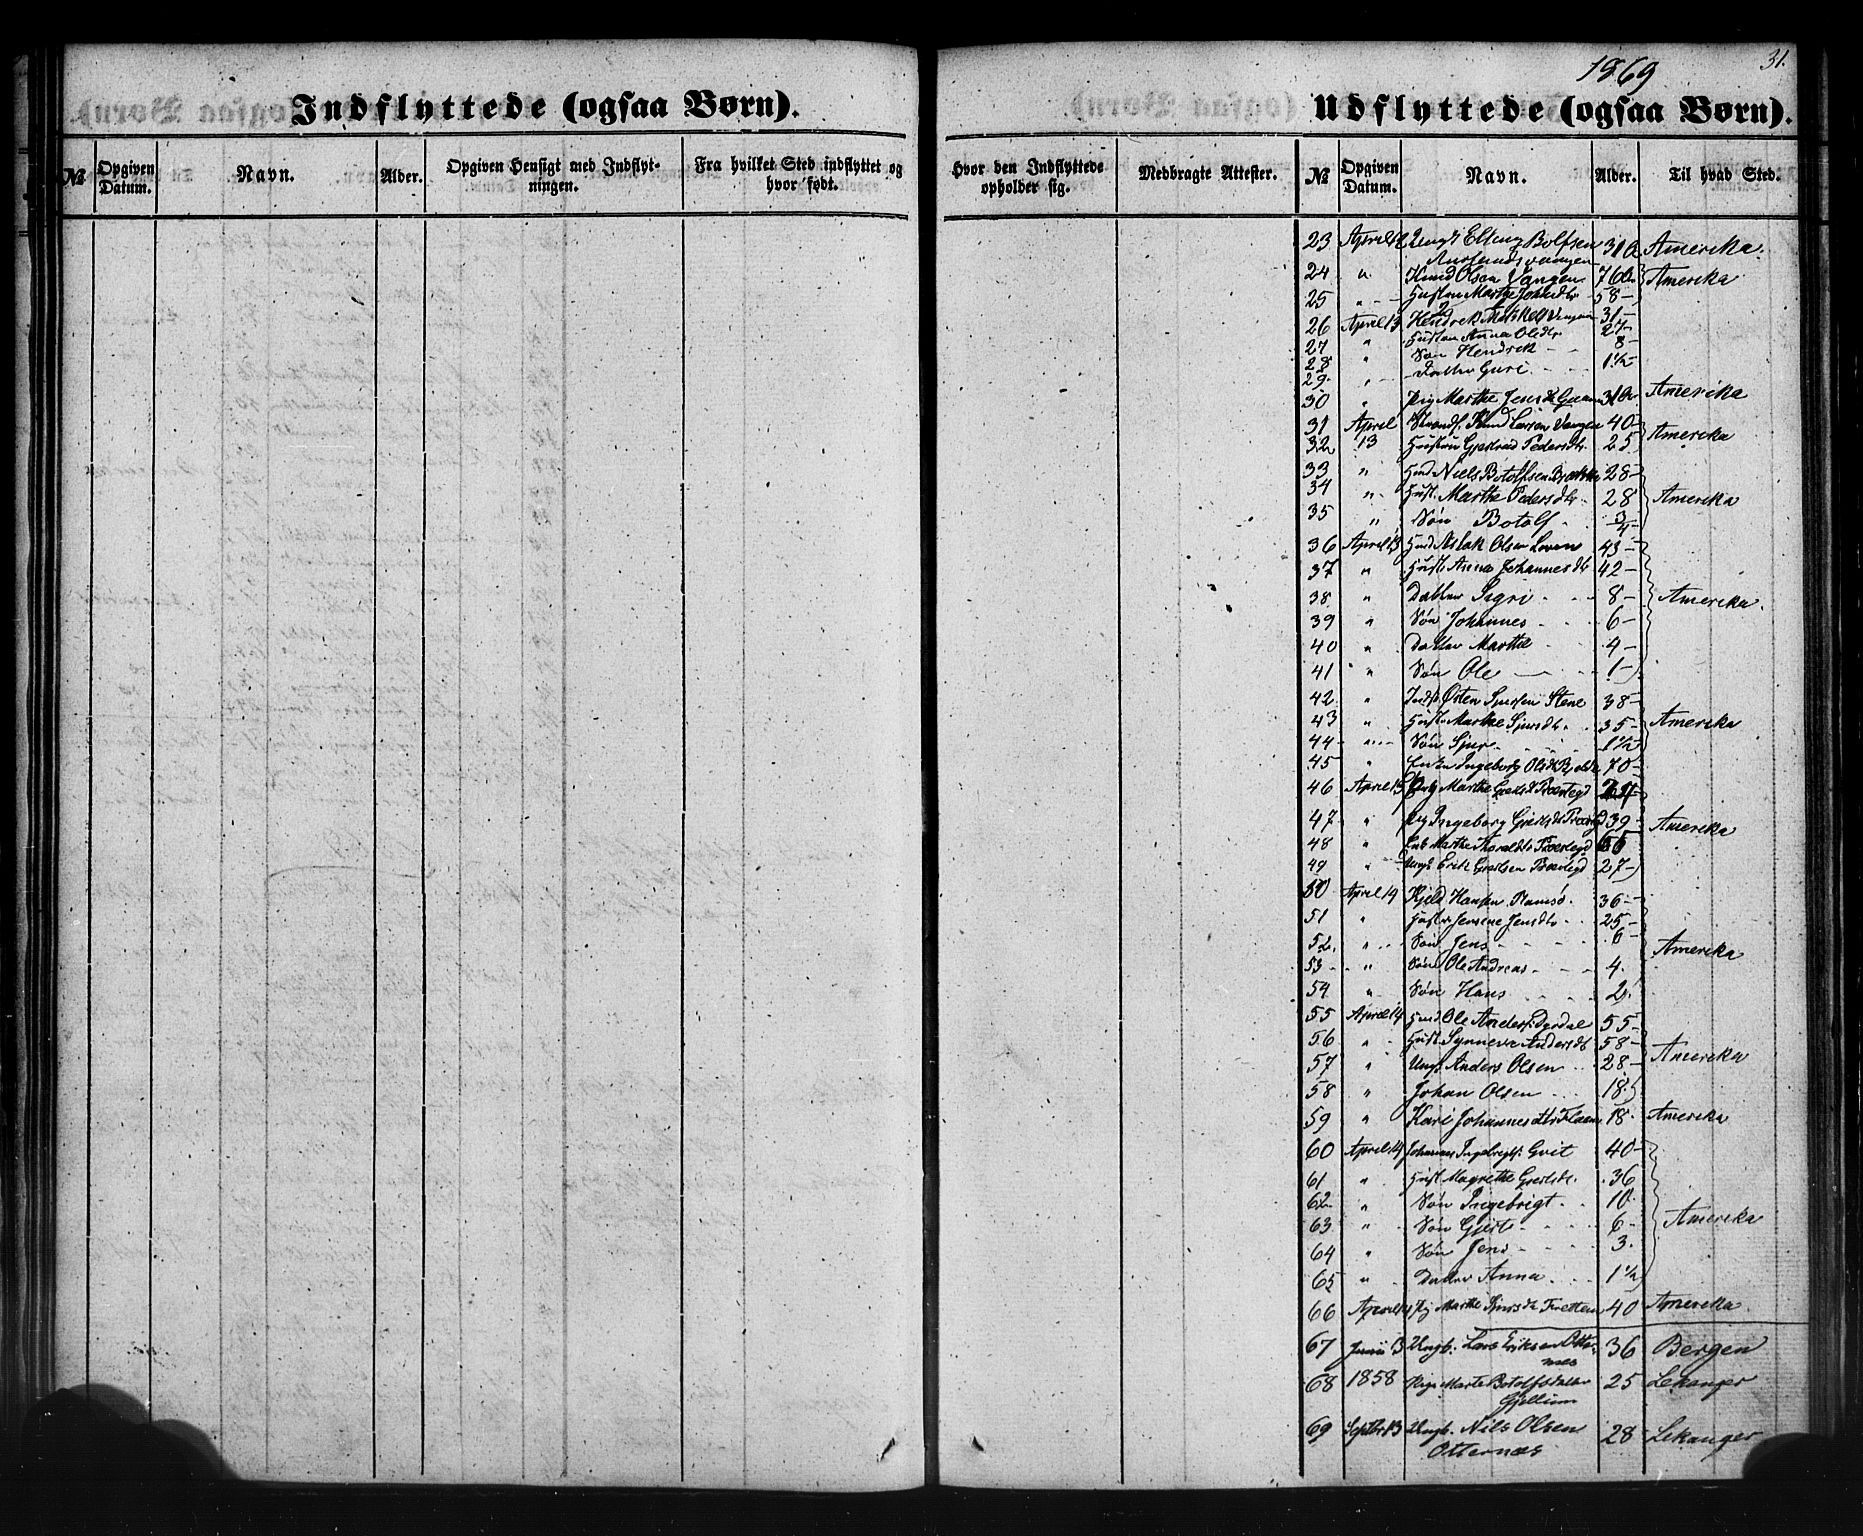 1869
31.
Indflyttede (ogsaa Børn).
Udflyttede (ogsaa Børn).
№ Opgiven Datum. Navn. Alder. Opgiven Hensigt med Indflytningen. Fra hvilket Sted indflyttet og hvor født.
Hvor den Indflyttede opholder sig. Medbragte Attester. № Opgiven Datum. Navn. Alder. Til hvad Sted.
23 April 12 Elling Bolfsen 31 Amerika.
24 " Knud Olsen Vangen 76 Amerika
25 " 58 -
26 April 13 Hendrek Vangen 31 -
27 " Hustru Anna Olsdtr 27 -
28 " Søn Hendrek 8 -
29 " Datter Guri 1 1/2 -
30 " Pige Marthe Jensdtr 31 Amerika
31 April Strands. Knud Larsen Vangen 40 -
32 13 Hustru Pedersdtr 25 Amerika
33 " Niels Botolfsen 28 -
34 " Hust. Marthe Pedersdtr 28 Amerika
35 " Søn Botolf 3/4 -
36 April 13 Aslak Olsen 43 -
37 " Hust. Anna Johannesdtr 42 -
38 " Datter Sigri 8 - Amerika.
39 " Søn Johannes 6 -
40 " Datter Marthe 4 -
41 " Søn Ole 1 -
42 " Østen Sjursen Stene 38 -
43 " Hustr. Marthe Sjursdtr. 35 - Amerika
44 " Søn Sjur 1 1/2 -
45 " Enke Ingeborg Olsdtr 70 -
46 April 13 Marthe
47 " Pig Ingeborg 39 - Amerika
48 " Enk. Marthe
49 " Ungk. Erik 27 -
50 April 14 Kjeld Hansen Ramsø 36 -
51 " Hustr. Jensine Jensdtr 25 -
52 " Søn Jens 6 - Amerika
53 " Søn Ole Andreas 4.
54 " Søn Hans 2.
55 April 14 Ole Anders. Dyrdal 55 -
56 " Hust. Synneve Andersdtr 58 -
57 " Ungk. Anders Olsen 28 - Amerika
58 " Johan Olsen 18
59 " Kari Johannesdtr Flaam 18. Amerika
60 April 14 Johannes Ingebrigts. 40 -
61 " Hust. Magrethe 36
62 " Søn Ingebrigt 10.
63 " Søn Gjert 6 - Amerika
64 " Søn Jens 3.
65 " Datter Anna 1 1/2
66 April 14 Pig Marthe Sjursdtr Fretten 40 Amerika
67 Juni 3 Ungk. Lars Eriksen Otternæs 36 Bergen
68 1858 Pige Marte Botolfsdatter Gjellum 25 Lekanger
69 Septbr 13 Ungk. Nils Olsen Otternæs 28 Lekanger